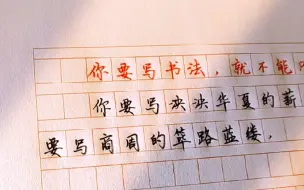 你要写书法，就不能
你要写泱泱华夏的薪
要写商周的筚路蓝缕，